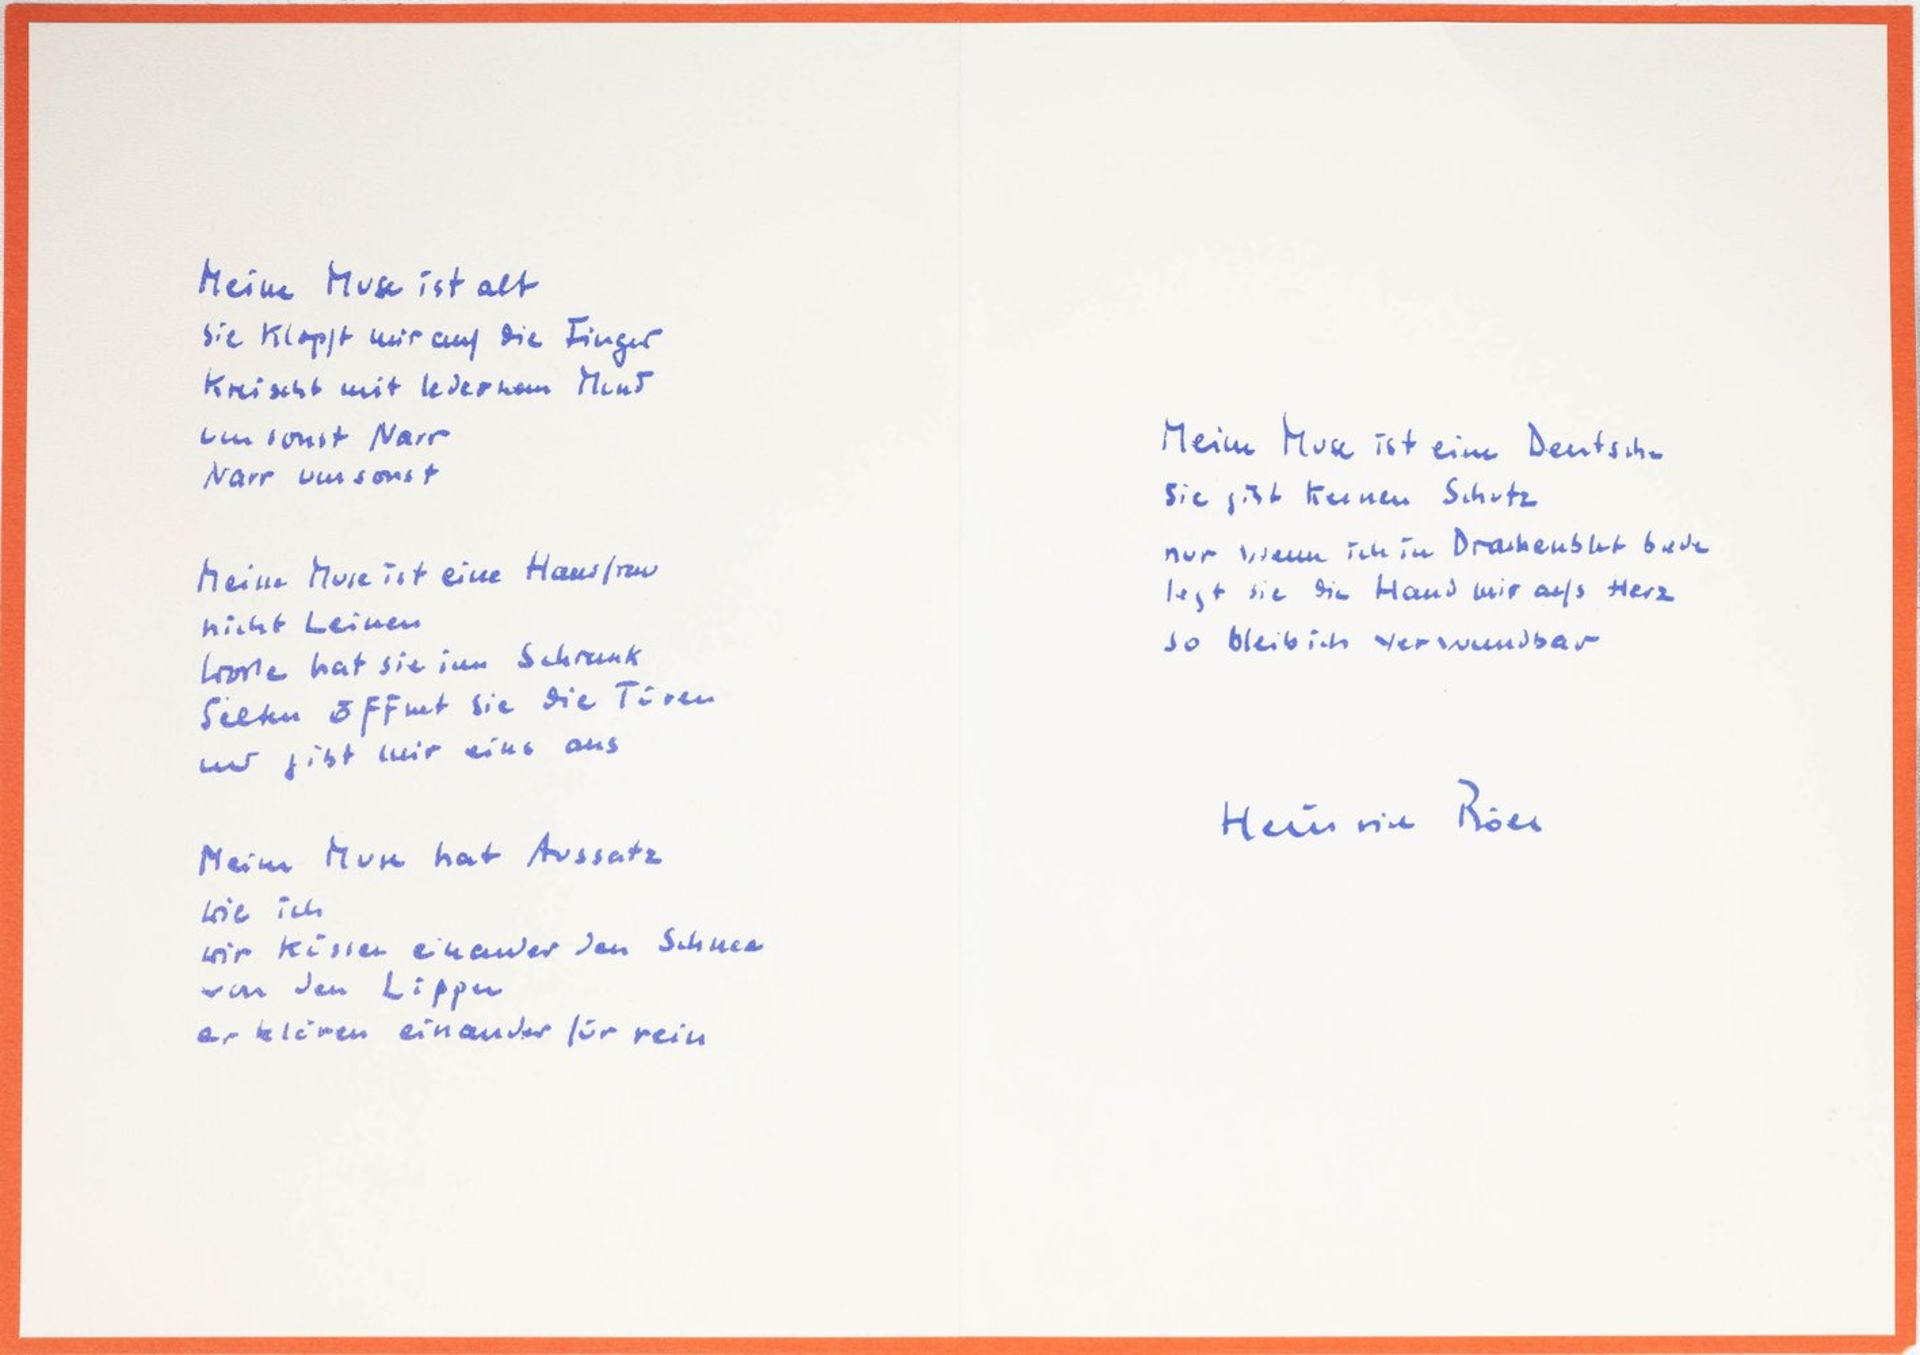 Meine Muse ist alt
Sie klopft mir auf die Finger
kreischt mit ledernem Mund
umsonst Narr
Narr umsonst
Meine Muse ist eine Hausfrau
nicht Leinen
Worte hat sie im Schrank
Selten öffnet sie die Türen
und gibt mir eins aus
Meine Muse hat Aussatz
wie ich
wir küssen einander den Schnee
von den Lippen
erklären einander für rein
Meine Muse ist eine Deutsche
Sie gibt keinen Schutz
nur wenn ich in Drachenblut bade
legt sie die Hand mir aufs Herz
so bleib ich verwundbar
Heinrich Böll